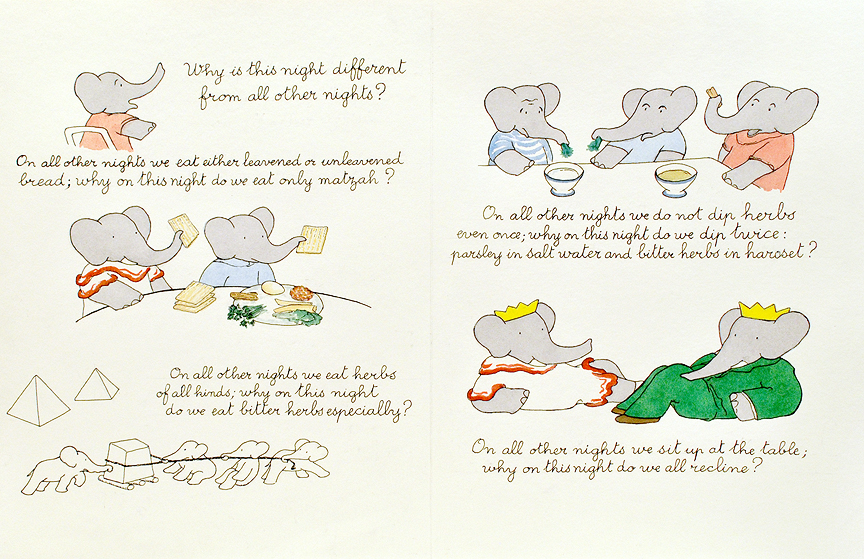 Why is this night different
from all other nights?
On all other nights we eat either leavened or unleavened
bread; why on this night do we eat only matzah?
On all other nights we eat herbs
of all kinds; why on this night
do we eat bitter herbs especially?
On all other nights we do not dip herbs
even once; why on this night do we dip twice:
parsley in salt water and bitter herbs in haroset?
On all other nights we sit up at the table;
why on this night do we all recline?